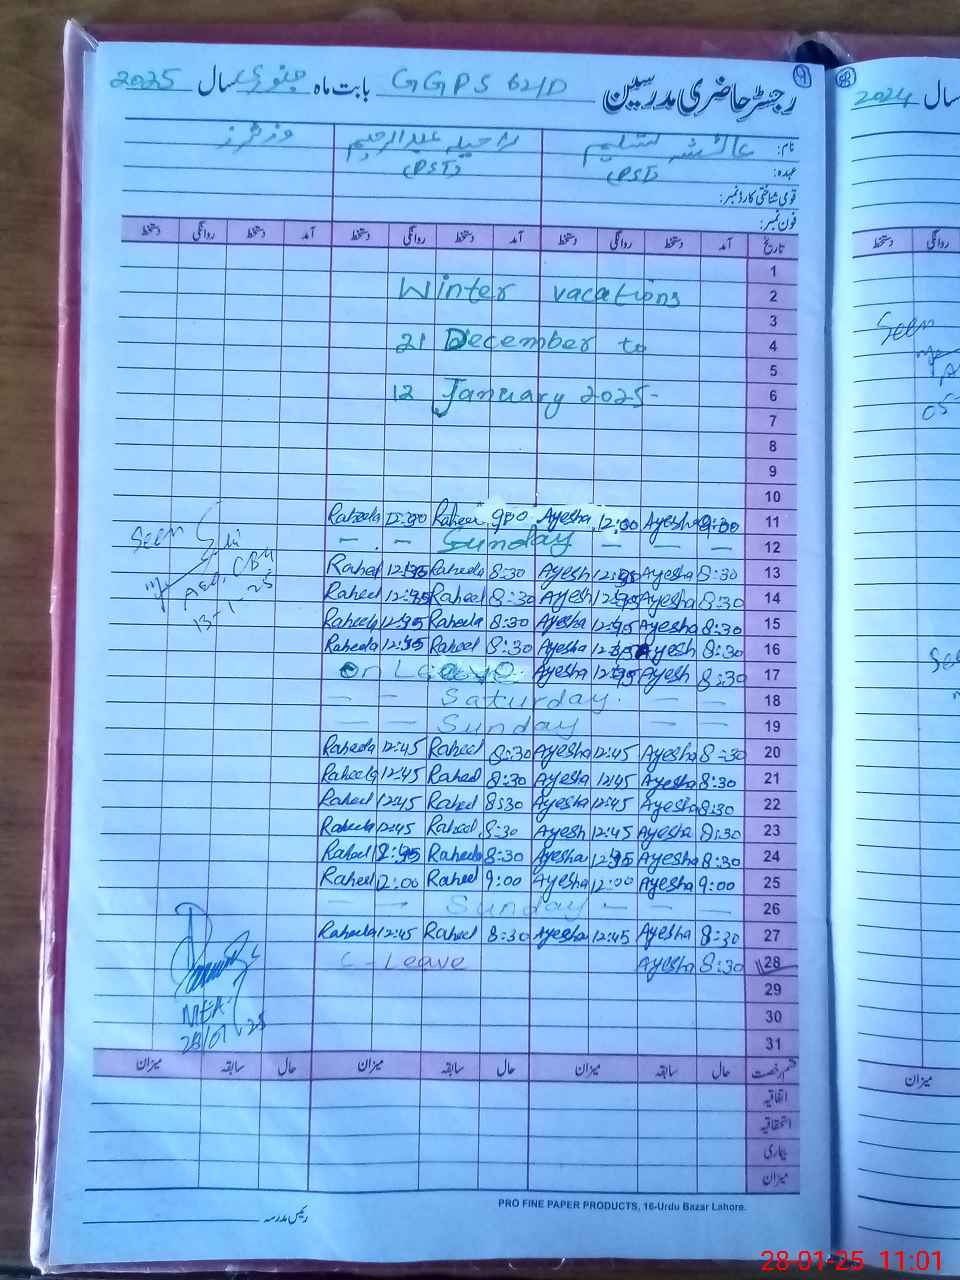 رجسٹر حاضری مدرسین GGPS 62/D بابت ماہ جنوری سال 2025
نام: عائشہ تسلیم راحیلہ عبدالرحیم وزٹرز
عہدہ: PST PST
قومی شناختی کارڈ نمبر:
فون نمبر:
تاریخ آمد دستخط روانگی دستخط آمد دستخط روانگی دستخط آمد دستخط روانگی دستخط
1
2 Winter vacations
3
4 21 December to
5
6 12 January 2025-
7
8
9
10
Raheela 12:00 Raheel 9:00 Ayesha 12:00 Ayesha 9:00 11
Sunday 12
Raheel Raheela 8:30 Ayesh Ayesha 8:30 13
Raheel Raheel 8:30 Ayesh Ayesha 8:30 14
Raheela Raheela 8:30 Ayesha Ayesha 8:30 15
Raheela Raheel 8:30 Ayesha Ayesh 8:30 16
on Leave Ayesha Ayesh 8:30 17
Saturday 18
Sunday 19
Raheela 12:45 Raheel 8:30 Ayesha 12:45 Ayesha 8:30 20
Raheela 12:45 Raheel 8:30 Ayesha 12:45 Ayesha 8:30 21
Raheel 12:45 Raheel 8:30 Ayesha 12:45 Ayesha 8:30 22
Raheela 12:45 Raheel 8:30 Ayesh 12:45 Ayesha 8:30 23
Raheel Raheela 8:30 Ayesha Ayesha 8:30 24
Raheel 12:00 Raheel 9:00 Ayesha 12:00 Ayesha 9:00 25
Sunday 26
Raheela 12:45 Raheel 8:30 Ayesha 12:45 Ayesha 8:30 27
C-Leave Ayesha 8:30 28
29
30
31
Seen
AEO, CBM
13-1-25
MEA-
28/01/25
قسم رخصت حال سابقہ میزان حال سابقہ میزان حال سابقہ میزان
اتفاقیہ
استحقاقیہ
بیماری
میزان
PRO FINE PAPER PRODUCTS, 16-Urdu Bazar Lahore.
رئیس مدرسہ
سال 2024
روانگی دستخط
Seen
05-
میزان
28-01-25 11:01